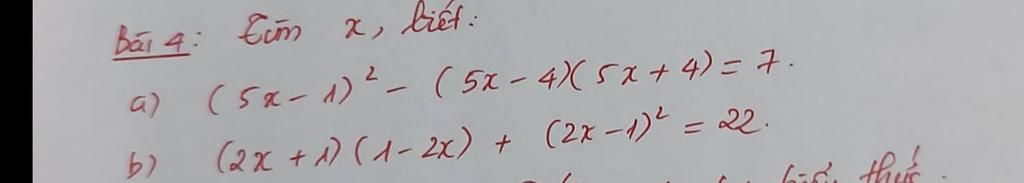 Bài 4: Tìm x, biết:
a) (5x - 1)² - (5x - 4)(5x + 4) = 7.
b) (2x + 1)(1 - 2x) + (2x - 1)² = 22.
thức.